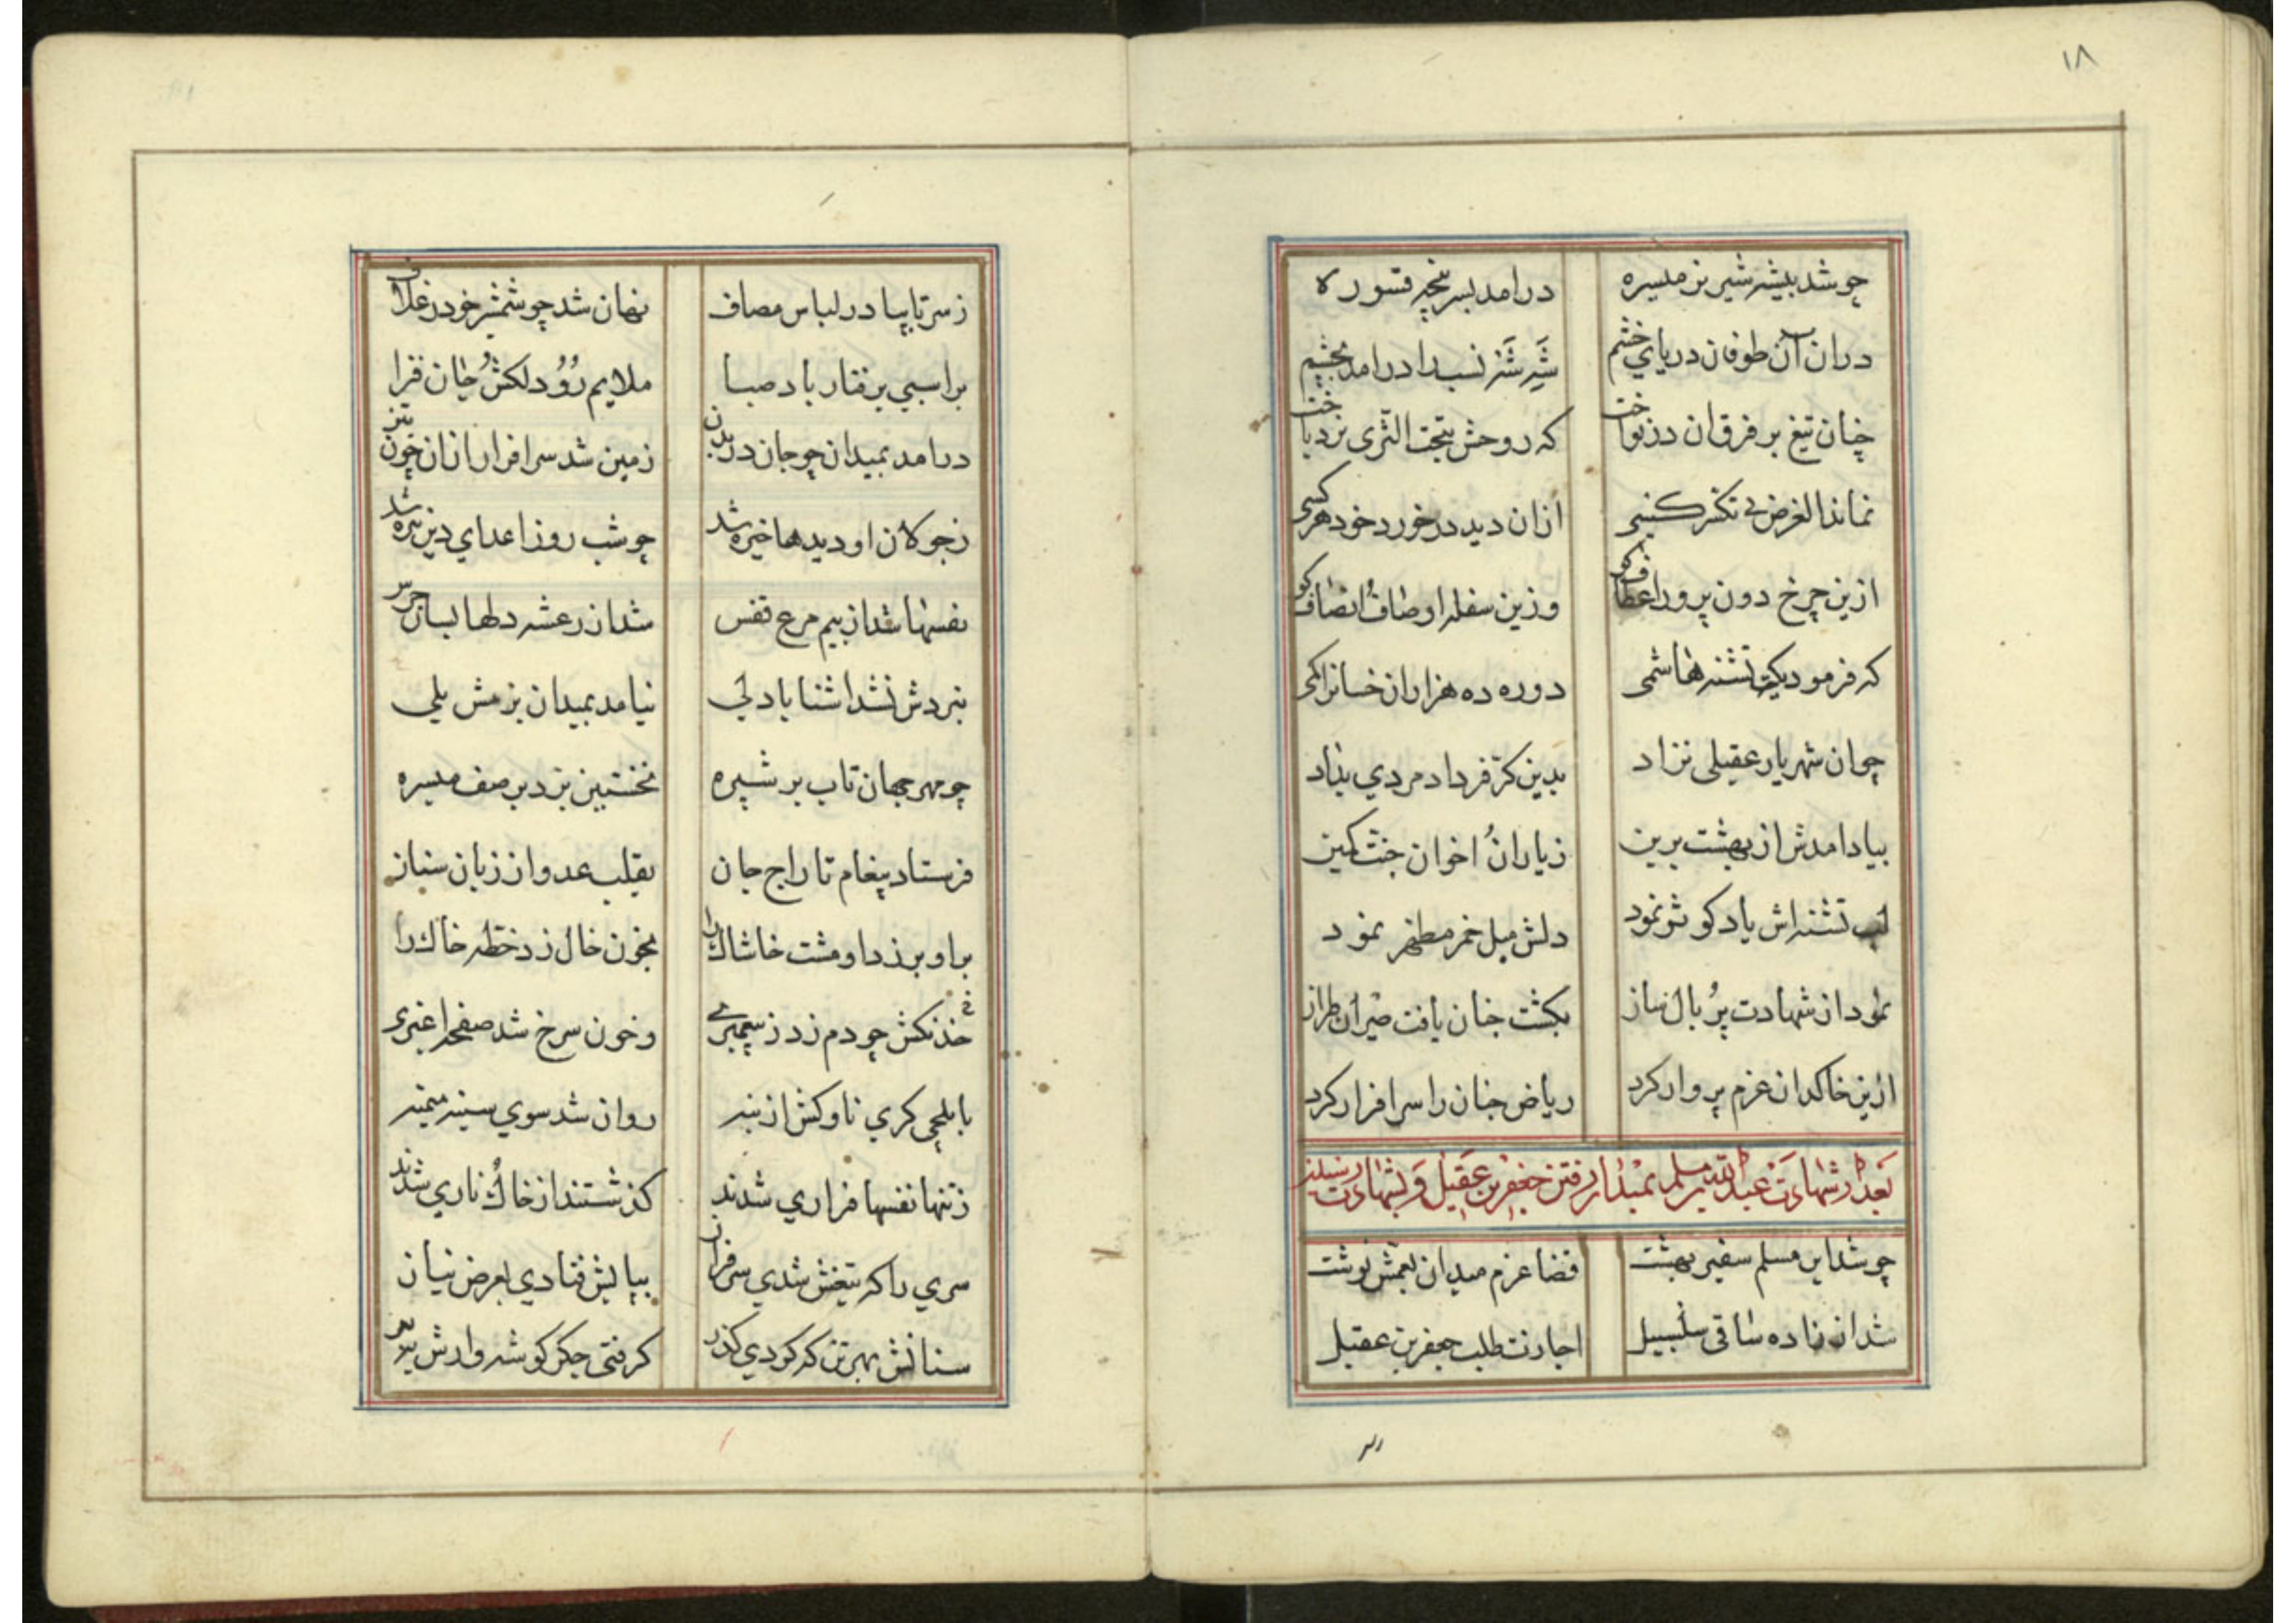 ۱۸
چو شد بیشه شیر نر میسره درامد بسرپنجه قسوره
دران آن طوفان دریای خشم شیر شرزه نسب را درامد بچشم
چنان تیغ بر فرق ان دز نواخت که روحش بتحت الثری نرد باخت
نماند الغرض بی تکثر کسی ازان دید در خورد خود هرکسی
ازین چرخ دون پرور اعطاف کو وزین سفله اوصاف انصاف کو
که فرمود یک تشنه هاشمی دوره ده هزاران خسانرا کمی
جوان شهریار عقیلی نژاد بدین کرّ فر داد مردی بداد
بیاد امدش از بهشت برین ز یاران اخوان جنت مکین
لب تشنه اش یاد کوثر نمود دلش میل خمر مطهر نمود
نمود از شهادت پر بال ساز بکشت جنان یافت طیران طراز
ازین خاکدان عزم پرواز کرد ریاض جنان را سرافراز کرد
بعد از شهادت عبد الله مسلم بمیدان رفتن جعفر بن عقیل و بشهادت رسیدن
چو شد ابن مسلم سفیر بهشت قضا عزم میدان بعمش نوشت
شد ان زاده ساقی سلسبیل اجازت طلب جعفر بن عقیل
ز سر تا بپا در لباس مصاف نهان شد چو شمشیر خود در غلاف
بر اسبی برفتار باد صبا ملایم رو و دلکش و جان فزا
درامد بمیدان چو جان در بدن زمین شد سرافراز ازان خون
ز جولان او دیدها خیره شد چو شب روز اعدای دین تیره شد
نفسها شد از بیم مرغ قفس شد از رعشه دلها بسان جرس
نبردش نشد اشنا با دلی نیامد بمیدان بزمش یلی
چو مهر جهان تاب بر شپره نخستین بزد بر صف میسره
فرستاد پیغام تاراج جان بقلب عدو از زبان سنان
بر او برزد او مشت خاشاک را بخون خال زد خطه خاک را
خدنکش چو دم زد ز پیغمبری و خون سرخ شد صفحه اغبری
با یلچی کری ناوکش از بنه روان شد سوی سینه میمنه
ز تنها نفسها فراری شدند کذشتند از خاک و ناری شدند
سری را که تیغش شدی سرفراز بپایش فتادی بعرض نیاز
سنانش بهر تن که کردی کذر کرفتی جکر کوشه وارش ببر